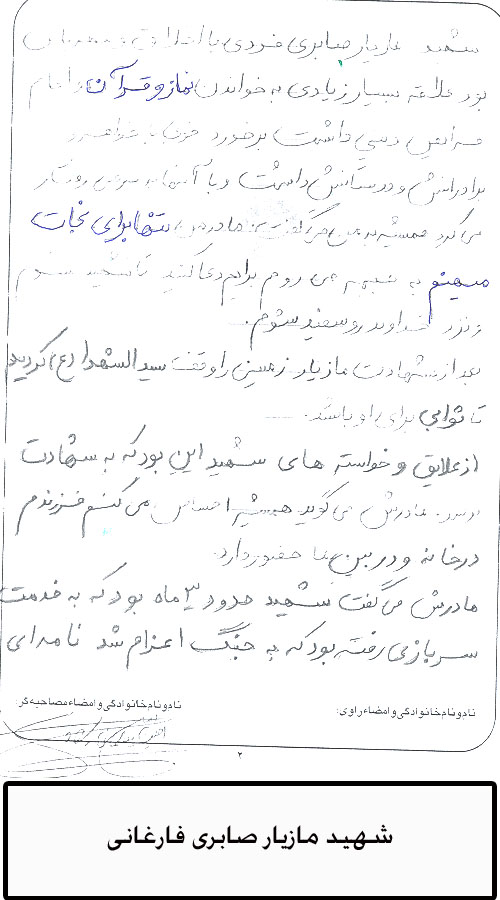 شهید مازیار صابری فردی با اخلاق و
بود علاقه بسیار زیادی به خواندن نماز و قرآن و انجام
فرائض دینی داشت برخورد خوبی با خواهر و
برادرانش و دوستانش داشت و با آنها به
می کرد همیشه به من می گفت مادر من تنها برای نجات
میهنم به جبهه می روم برایم دعا کنید تا شهید شوم
و نزد خداوند رو سفید شوم.
بعد از شهادت مازیار زمینی را وقف سید الشهدا (ع) کردیم
تا ثوابی برای او باشد.
از علایق و خواسته های شهید این بود که به شهادت
برسد. مادرش می گوید همیشه احساس می کنم فرزندم
در خانه و در بین ما حضور دارد.
مادرش می گفت شهید حدود ۳ ماه بود که به خدمت
سربازی رفته بود که به جنگ اعزام شد نامه ای
نام و نام خانوادگی و امضاء راوی: نام و نام خانوادگی و امضاء مصاحبه گر:
۲
شهید مازیار صابری فارغانی